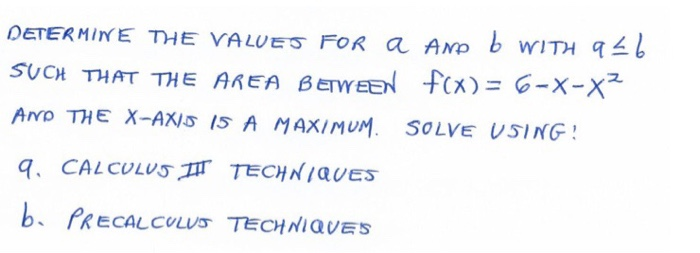 DETERMINE THE VALUES FOR a AND b WITH a ≤ b
SUCH THAT THE AREA BETWEEN f(x) = 6-x-x²
AND THE X-AXIS IS A MAXIMUM. SOLVE USING!
a. CALCULUS III TECHNIQUES
b. PRECALCULUS TECHNIQUES